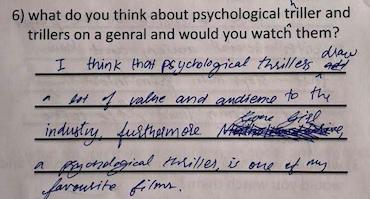 6) what do you think about psychological triller and
h
trillers on a genral and would you watch them?
I think that psychological thrillers draw
a lot of value and audience to the
industry, furthermore gone girl
a psychological thriller, is one of my
favourite films.